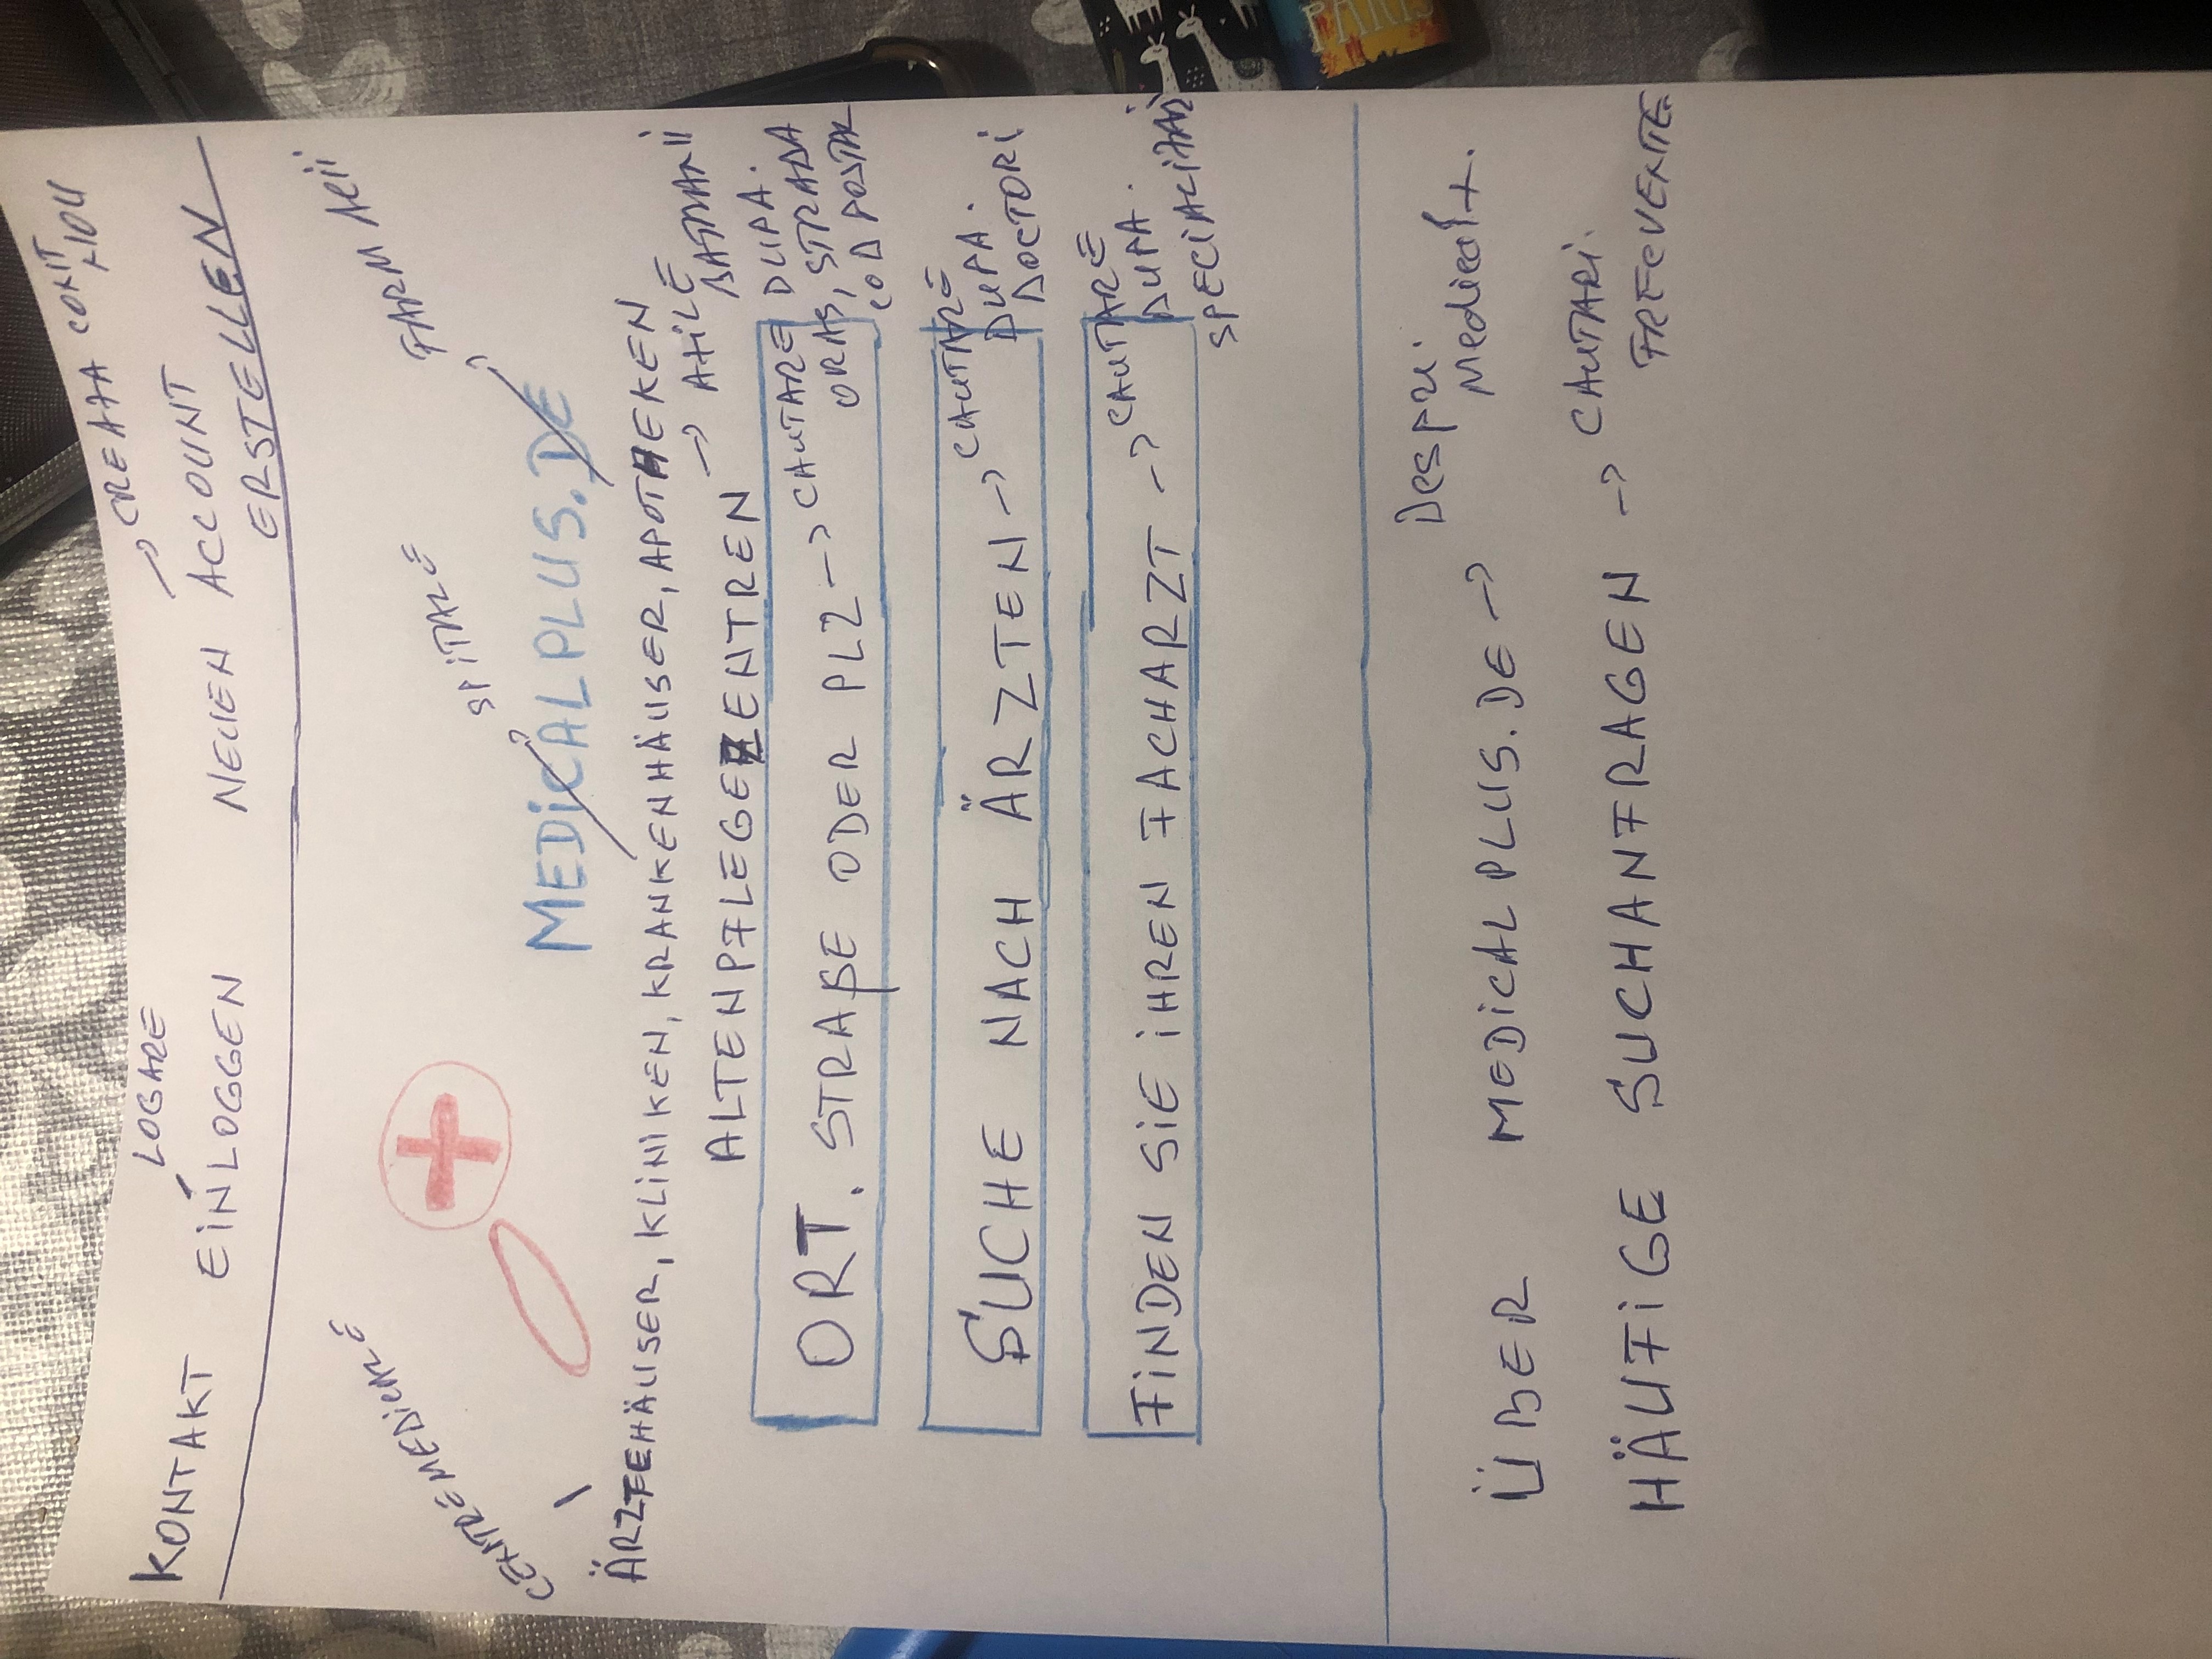 CREAZA CONT
NOU
LOGARE
KONTAKT EINLOGGEN NEUEN ACCOUNT
ERSTELLEN
CENTRE MEDICALE
SPITALE
FARMACII
MEDICALPLUS.DE
ÄRZTEHÄUSER, KLINIKEN, KRANKENHÄUSER, APOTHEKEN
ALTENPFLEGEZENTREN → AZILE
BATRANII
ORT. STRAßE ODER PLZ → CAUTARE DUPA.
ORAS, STRADA
COD POSTAL
SUCHE NACH ÄRZTEN → CAUTARE
DUPA.
DOCTORI
FINDEN SIE IHREN FACHARZT → CAUTARE
DUPA.
SPECIALIZARI
ÜBER MEDICALPLUS.DE → Despre
Medical+.
HÄUFIGE SUCHANFRAGEN → CAUTARI.
FRECVENTE